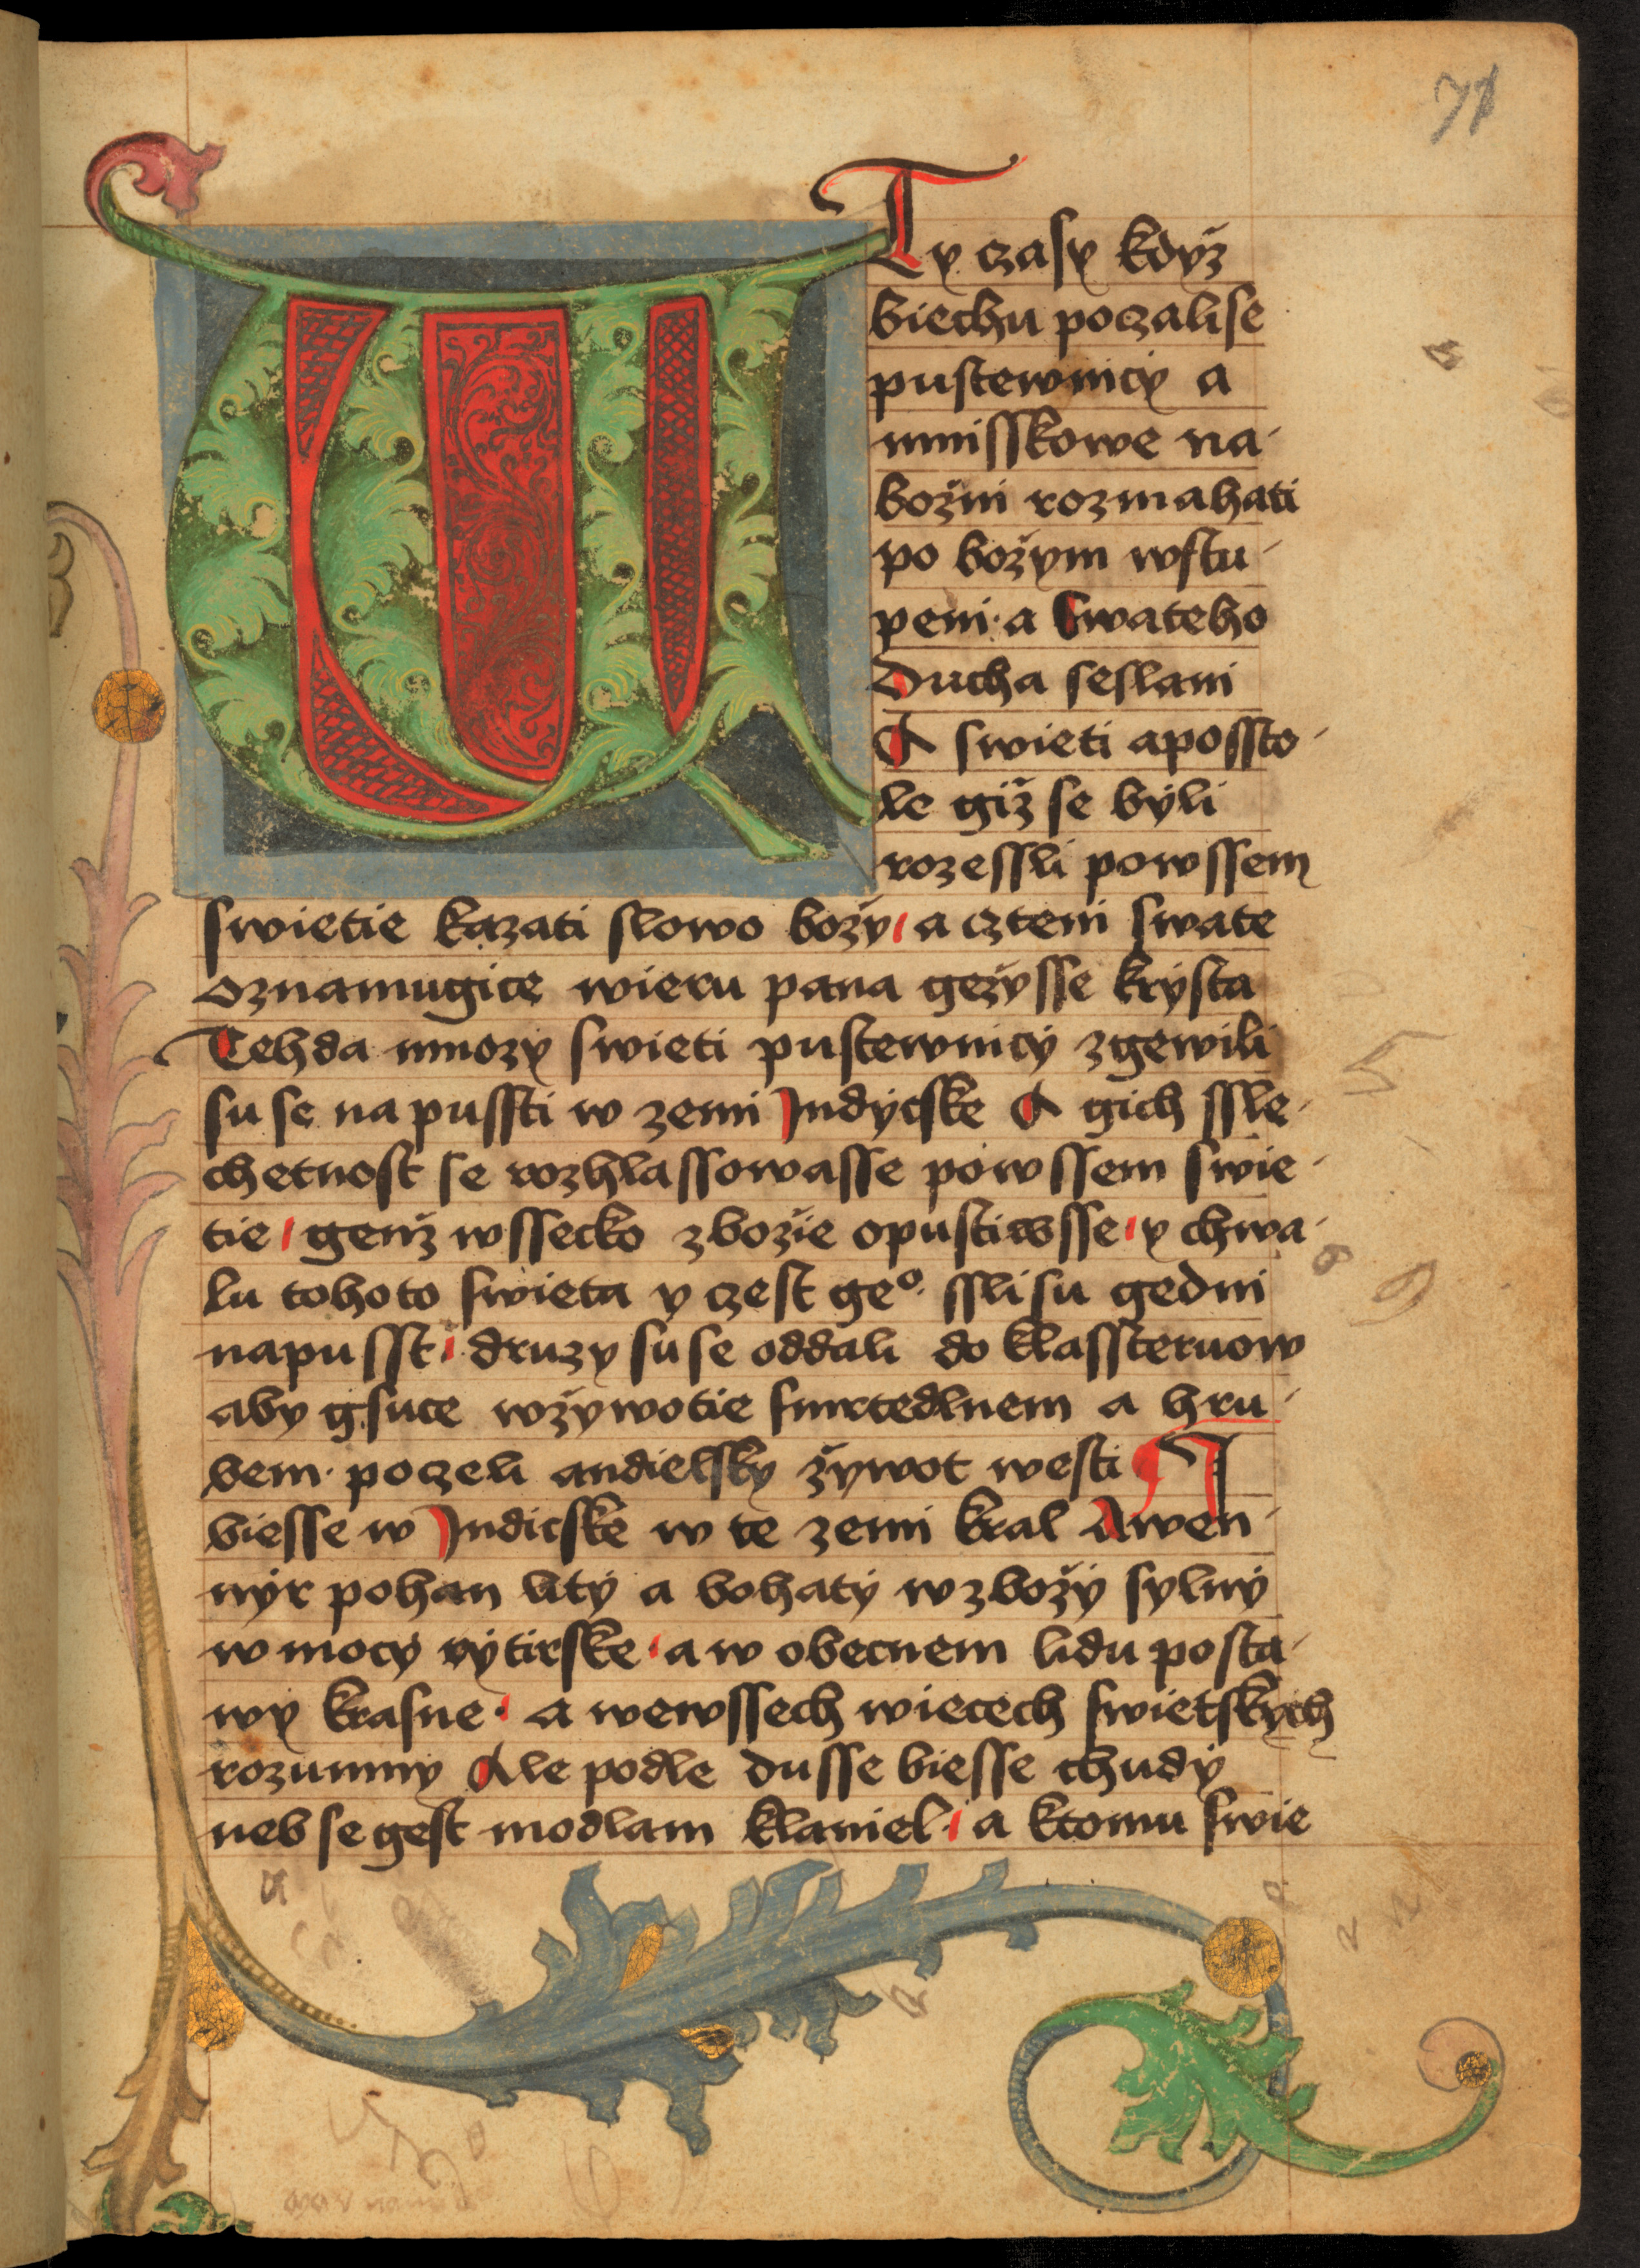 71
W Ty czasy když
biechu poczali se
pustewnicy a
mnisskowe na-
božni rozmahati
po božym wstu-
peni · a Swateho
Ducha seslani
A swieti apossto-
le giž se byli
rozessli powssem
swietie kazati slowo božy / a czteni swate
oznamugice wieru pana gežysse krysta
Tehda mnozy swieti pustewnicy zgewili
su se na pussti w zemi Indycske A gich ssle-
chetnost se rozhlassowasse powssem swie-
tie / genž wssecko zbožie opustiwsse / y chwa-
lu tohoto swieta y czest geº · ssli su gedni
napusst / druzy su se oddali do klassteruow
aby gsuce wžywotie smrtedlnem a hru-
bem · poczeli andielsky žywot westi ¶ I
biesse w Indicske w te zemi kral Awen-
nyr pohan lity a bohaty wzbožy sylny
w mocy rytirske / a w obecnem lidu posta-
wy krasne · a wewssech wiecech swietskych
rozumny Ale podle dusse biesse chudy
neb se gest modlam klaniel / a ktomu swie